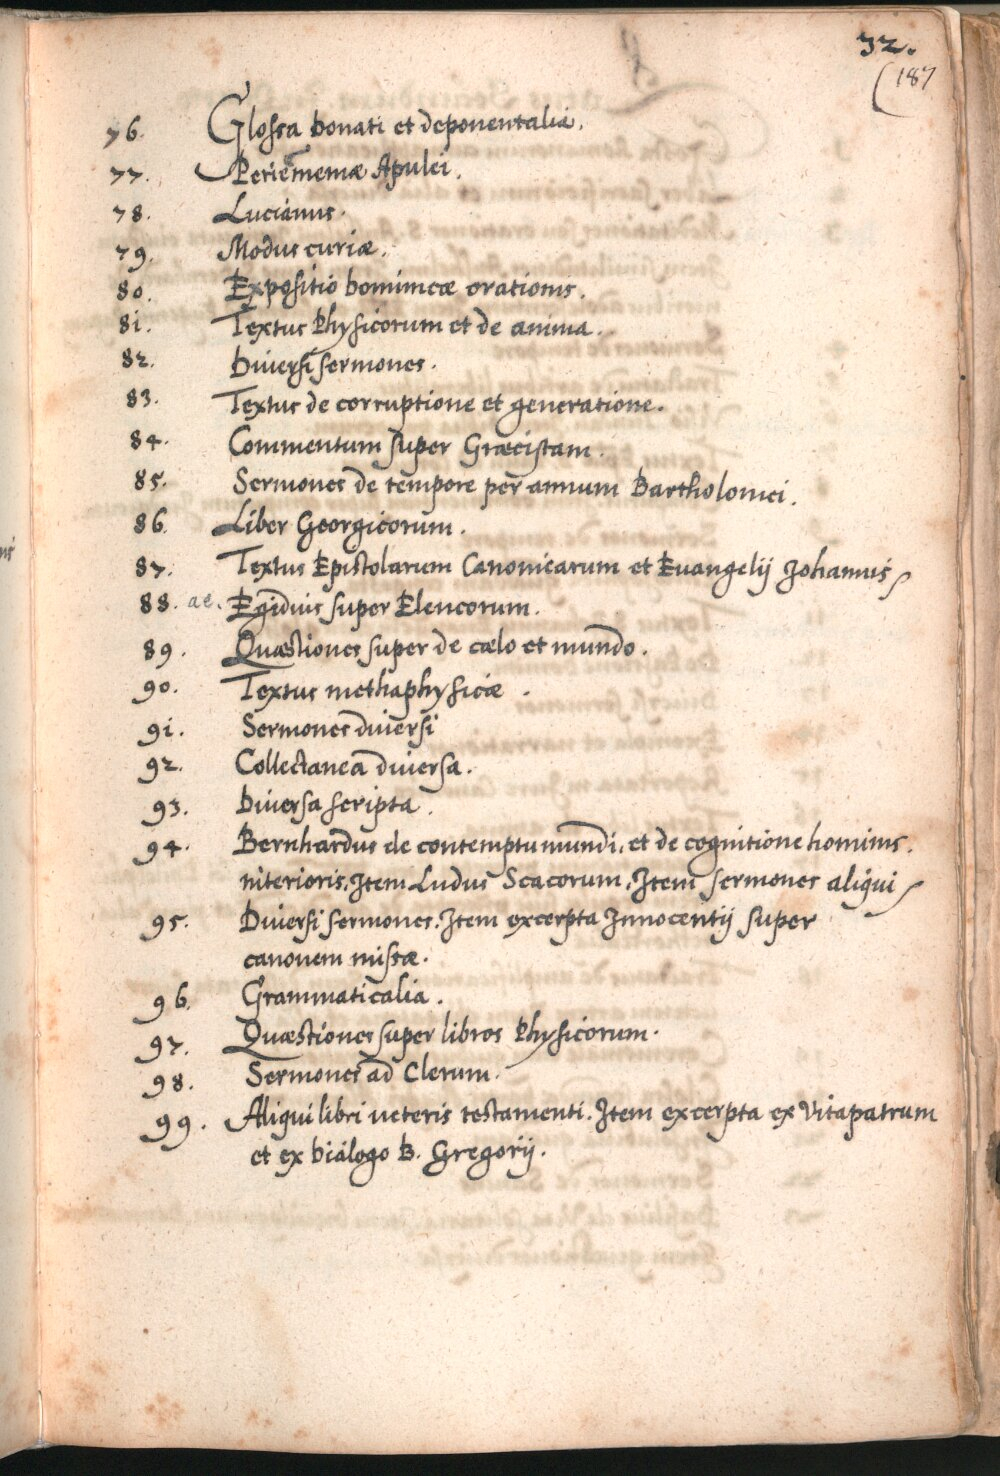 32.
(187
76. Glossa Donati et deponentalia.
77. Periermeniæ Apulei.
78. Lucianus.
79. Modus curiæ.
80. Expositio Dominicæ orationis.
81. Textus Physicorum et de anima.
82. Diuersi sermones.
83. Textus de corruptione et generatione.
84. Commentum super Græcistam.
85. Sermones de tempore per annum Bartholomei.
86. Liber Georgicorum.
87. Textus Epistolarum Canonicarum et Euangelij Johannis
88. ae. Egidius super Elencorum.
89. Quæstiones super de cælo et mundo.
90. Textus methaphysicæ.
91. Sermones diuersi
92. Collectanea diuersa.
93. Diuersa scripta.
94. Bernhardus de contemptu mundi, et de cognitione hominis.
interioris, Item Ludus Scacorum, Item sermones aliqui
95. Diuersi sermones. Item excerpta Innocentij super
canonem missæ.
96. Grammaticalia.
97. Quæstiones super libros Physicorum.
98. Sermones ad Clerum.
99. Aliqui libri ueteris testamenti. Item excerpta ex Vitapatrum
et ex Dialogo B. Gregorij.